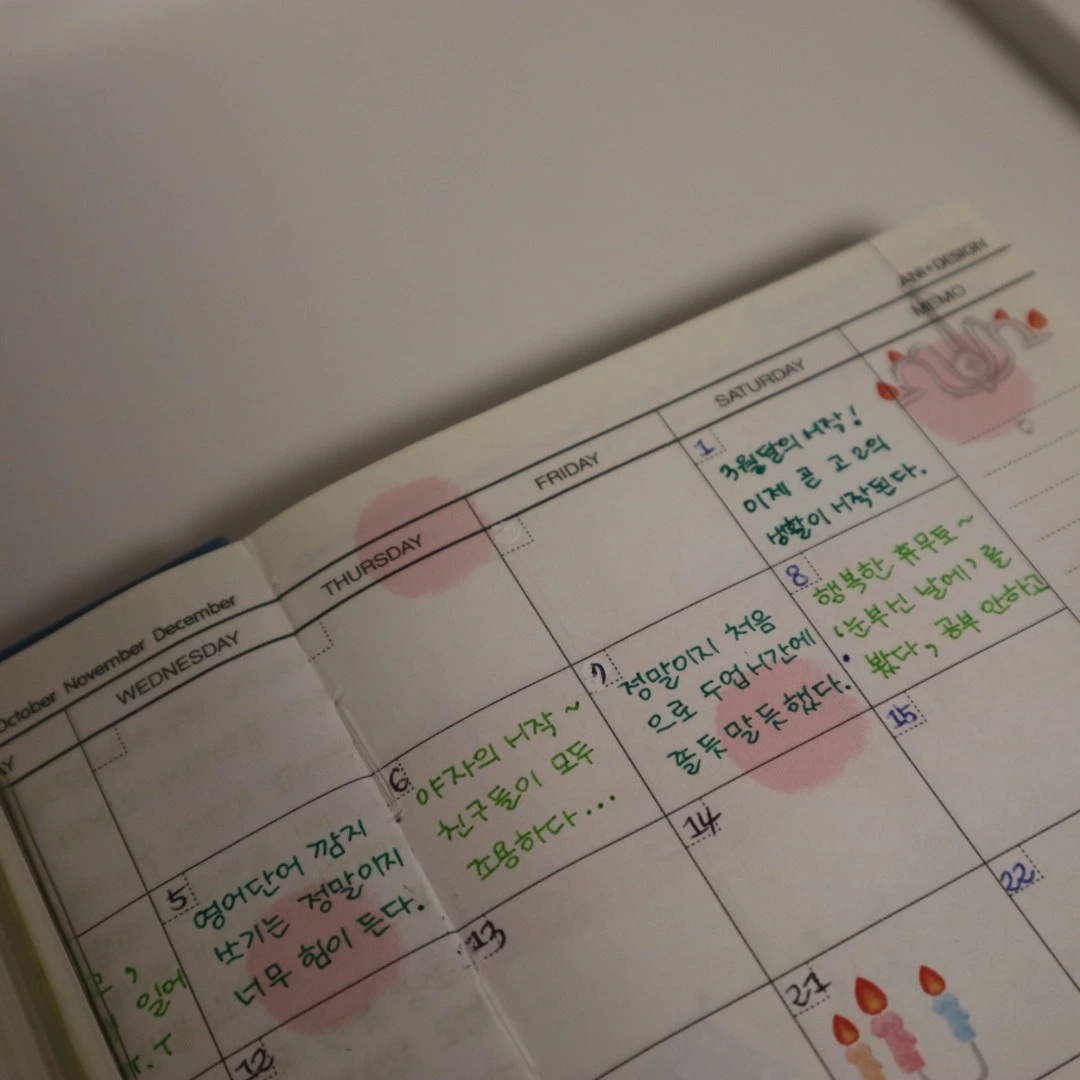 ANI*DESIGN
October November December
WEDNESDAY
THURSDAY
FRIDAY
SATURDAY
MEMO
1
3월달의 시작!
이제 곧 고2의
생활이 시작된다.
5
영어단어 깜지
쓰기는 정말이지
너무 힘이 든다.
6
야자의 시작~
친구들이 모두
조용하다...
7
정말이지 처음
으로 수업시간에
졸듯 말듯했다.
8
행복한 휴무토~
'눈부신 날에'를
봤다, 공부 안하고
일어
T.T
12
13
14
15
21
22